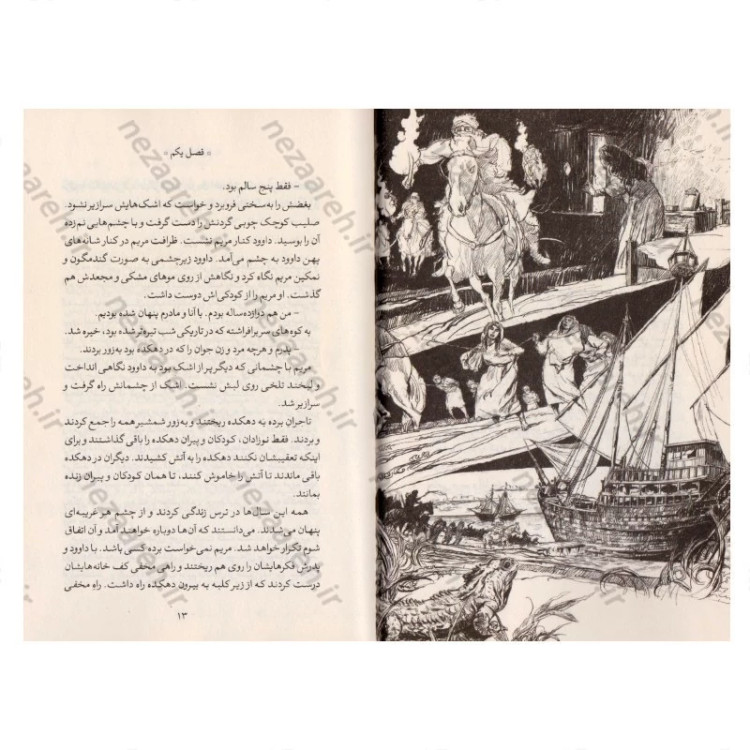 « فصل یکم »
– فقط پنج سالم بود.
بغضش را به‌سختی فرو برد و خواست که اشک‌هایش سرازیر نشود.
صلیب کوچک چوبی گردنش را دست گرفت و با چشم‌هایی نم‌زده
آن را بوسید. داوود کنار مریم نشست. ظرافت مریم در کنار شانه‌های
پهن داوود به چشم می‌آمد. داوود زیرچشمی به صورت گندمگون و
نمکین مریم نگاه کرد و نگاهش از روی موهای مشکی و مجعدش هم
گذشت. او مریم را از کودکی‌اش دوست داشت.
– من هم دوازده‌ساله بودم. با آنا و مادرم پنهان شده بودیم.
به کوه‌های سربرافراشته که در تاریکی شب تیره‌تر شده بود، خیره شد.
– پدرم و هرچه مرد و زن جوان را که در دهکده بود به‌زور بردند.
مریم با چشمانی که دیگر پر از اشک بود به داوود نگاهی انداخت
و لبخند تلخی روی لبش نشست. اشک از چشمانش راه گرفت و
سرازیر شد.
تاجران برده به دهکده ریختند و به‌زور شمشیر همه را جمع کردند
و بردند. فقط نوزادان، کودکان و پیران دهکده را باقی گذاشتند و برای
اینکه تعقیبشان نکنند دهکده را به آتش کشیدند. دیگران در دهکده
باقی ماندند تا آتش را خاموش کنند، تا همان کودکان و پیران زنده
بمانند.
همه این سال‌ها در ترس زندگی کردند و از چشم هر غریبه‌ای
پنهان می‌شدند. می‌دانستند که آن‌ها دوباره خواهند آمد و آن اتفاق
شوم تکرار خواهد شد. مریم نمی‌خواست برده کسی باشد. با داوود و
پدرش فکرهایشان را روی هم ریختند و راهی مخفی کف خانه‌هایشان
درست کردند که از زیر کلبه به بیرون دهکده راه داشت. راه مخفی
۱۳
nezaareh.ir
nezaareh.ir
nezaareh.ir
nezaareh.ir
nezaareh.ir
nezaareh.ir